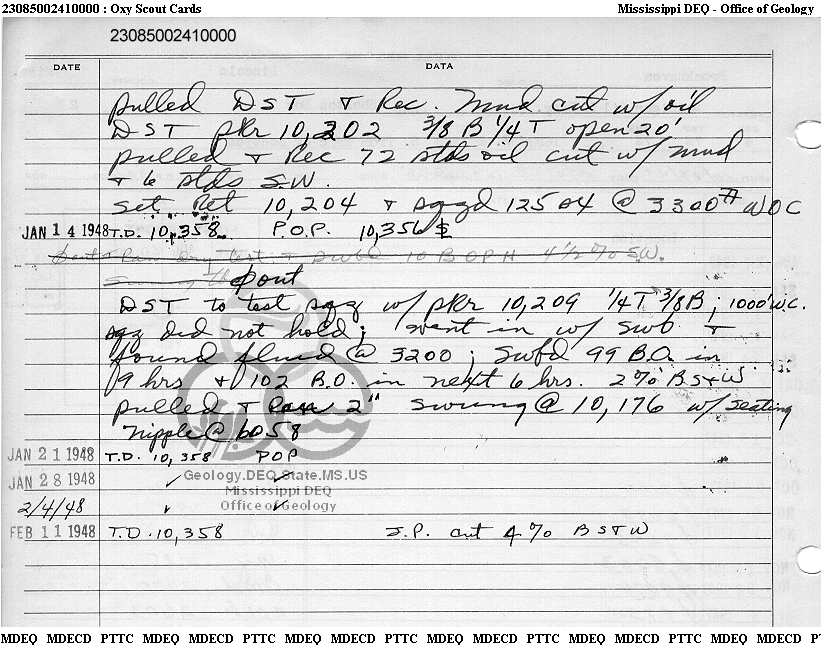 23085002410000 : Oxy Scout Cards Mississippi DEQ - Office of Geology
23085002410000
DATE DATA
pulled DST & Rec. Mud cut w/ oil
DST pkr 10,202 3/8 B 1/4 T open 20'
pulled & Rec 72 stds oil cut w/ mud
& 6 stds S.W.
Set Ret 10,204 & sqzd 125 @ 3300# WOC
JAN 14 1948 T.D. 10,358 P.O.P. 10,356
Test & Swbd 10 BOPH 4 1/2 % S.W.
Swung pout
DST to test sqz w/ pkr 10,209 1/4 T 3/8 B ; 1000' W.C.
sqz did not hold ; went in w/ swb &
found fluid @ 3200 ; swbd 99 B.O. in
9 hrs & 102 B.O. in next 6 hrs. 2% BS&W
pulled & ran 2" swung @ 10,176 w/ seating
nipple @ 6058
JAN 21 1948 T.D. 10,358 POP
JAN 28 1948 ✓ ✓
Geology.DEQ.State.MS.US
Mississippi DEQ
2/4/48 ✓ ✓
Office of Geology
FEB 11 1948 T.D. 10,358 S.P. cut 4% BS&W
MDEQ MDECD PTTC MDEQ MDECD PTTC MDEQ MDECD PTTC MDEQ MDECD PTTC MDEQ MDECD PTTC MDEQ MDECD